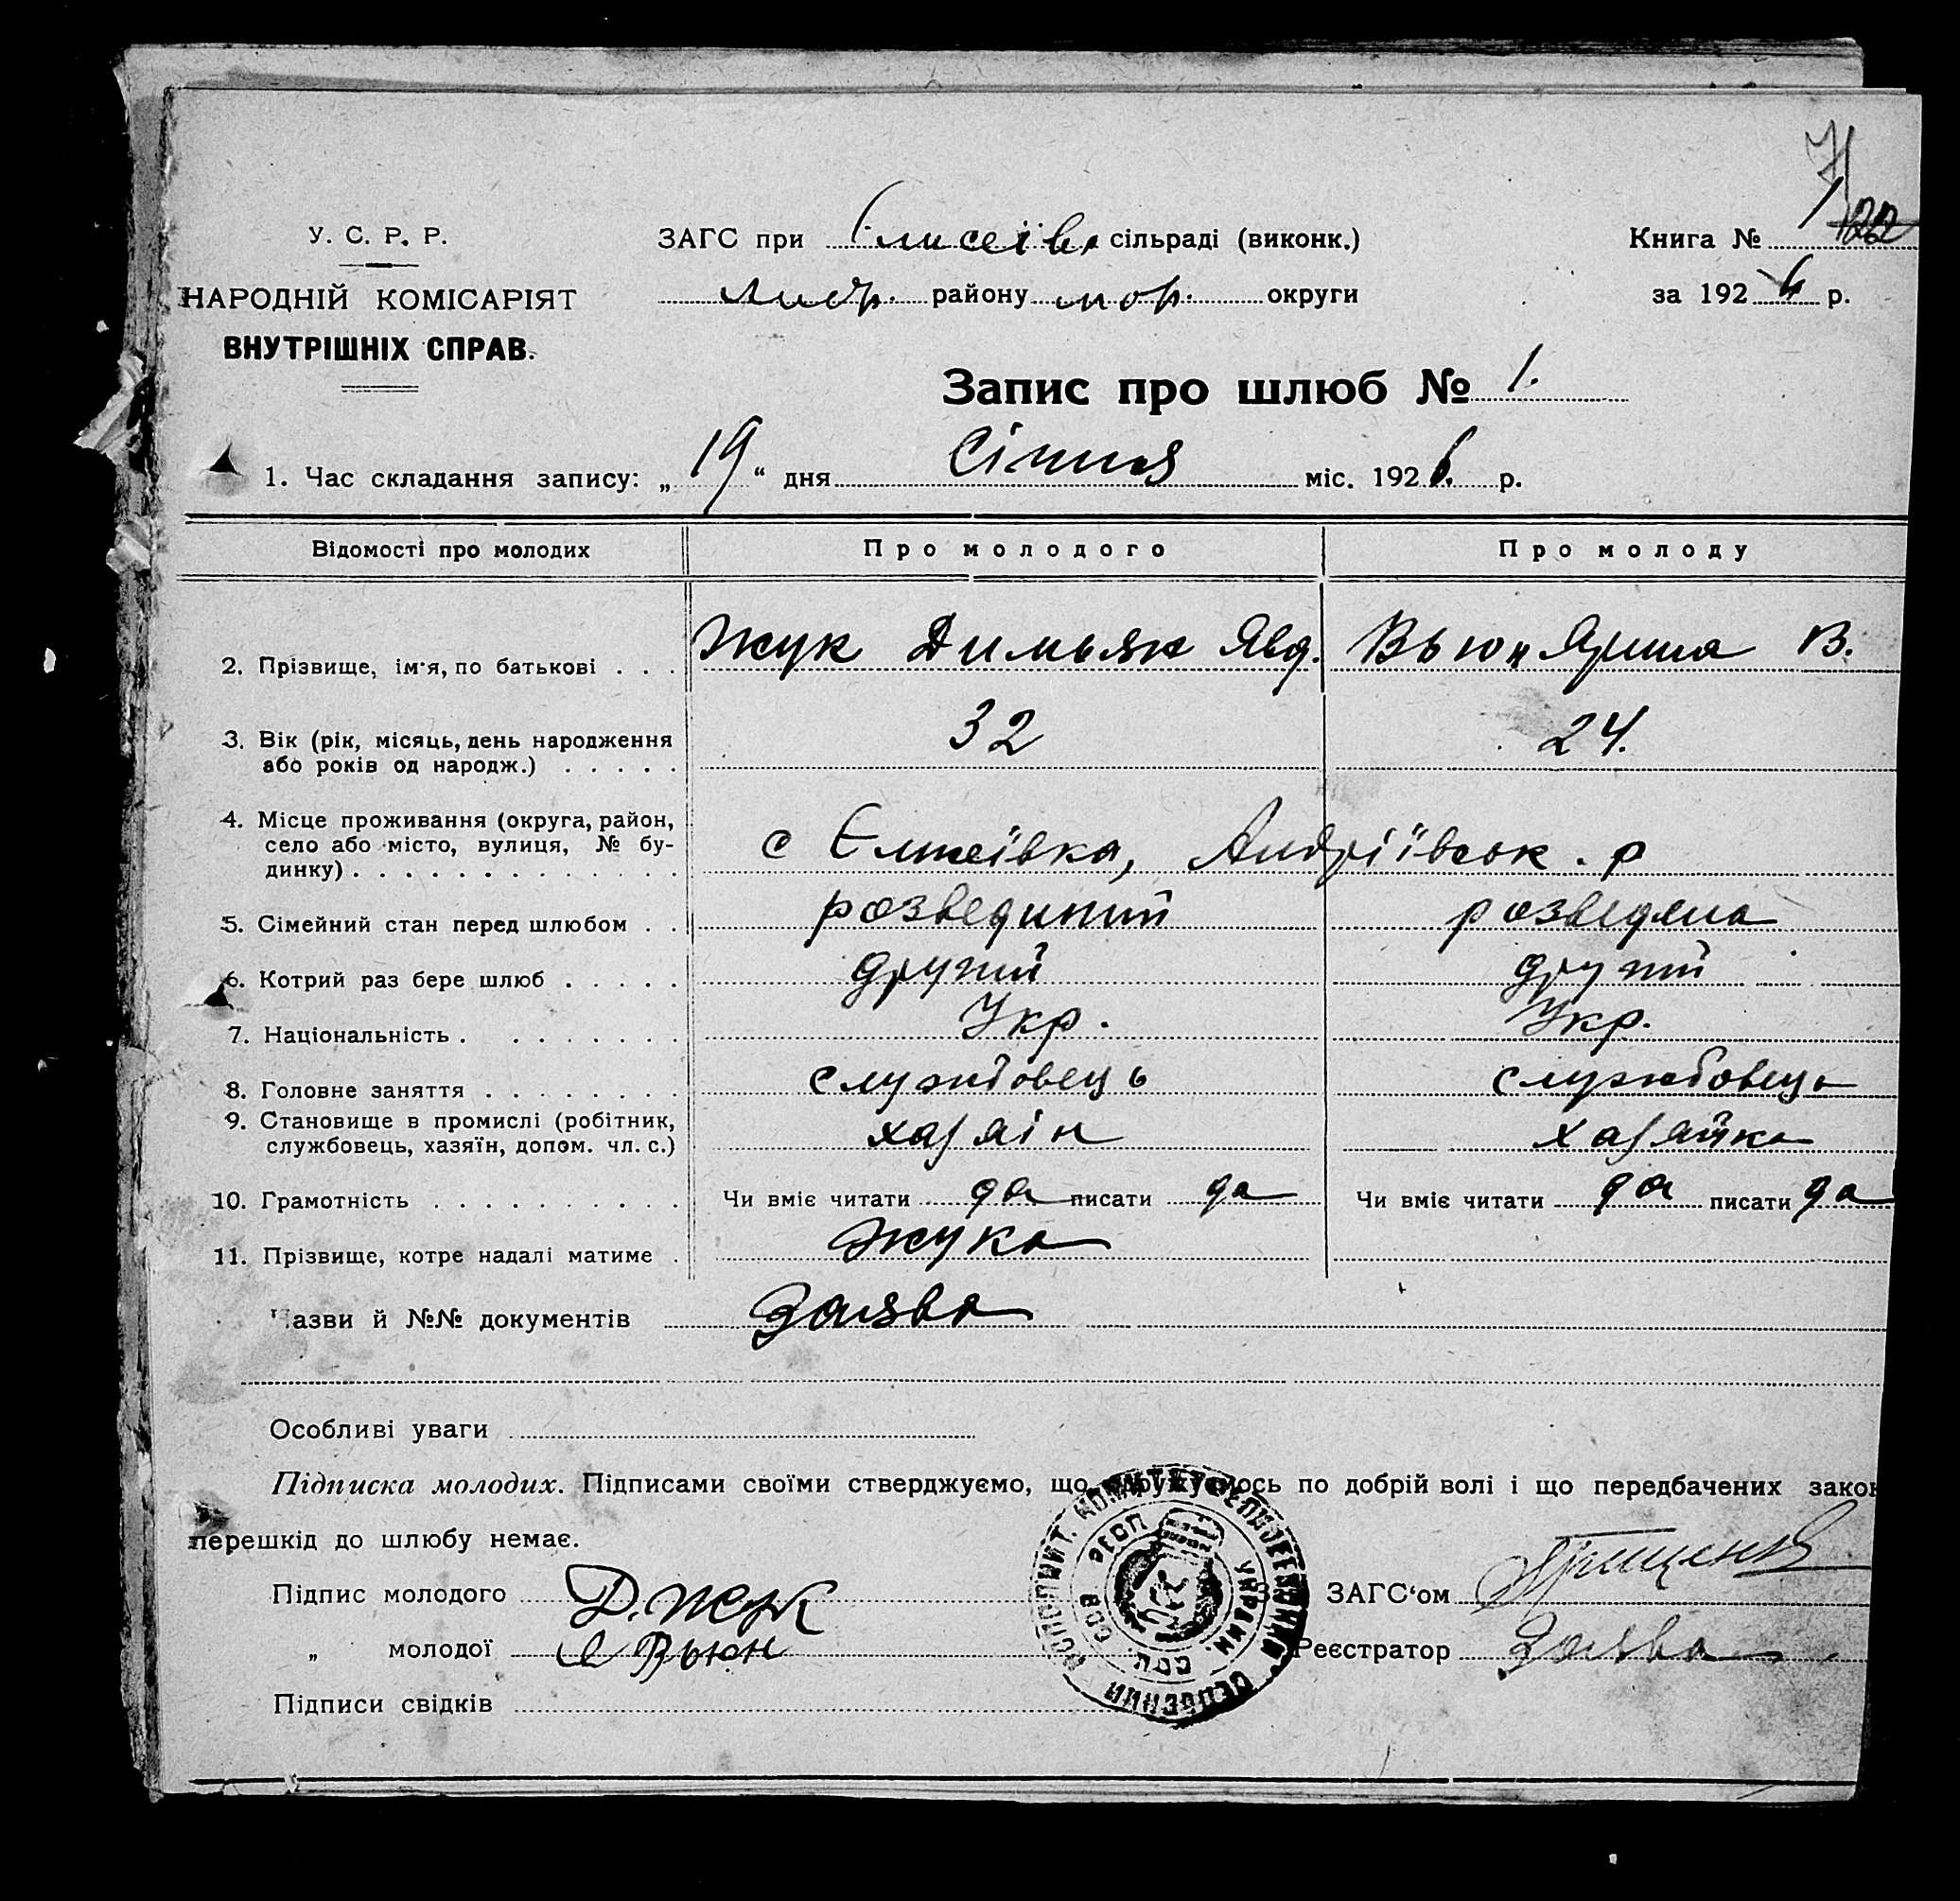 У. С. Р. Р.
НАРОДНІЙ КОМІСАРІЯТ
ВНУТРІШНІХ СПРАВ.
ЗАГС при Єлисеївк. сільраді (виконк.)
Андр. району округи
Книга № 1
за 1926 р.
Запис про шлюб № 1.
1. Час складання запису: „19“ дня Січня міс. 1926. р.
Відомості про молодих Про молодого Про молоду
2. Прізвище, ім'я, по батькові . . . Жук Димьян Явд. Вьюн Яриша В.
3. Вік (рік, місяць, день народження або років од народж.) . . . . . 32 24.
4. Місце проживання (округа, район, село або місто, вулиця, № будинку) . . . с Єлисеївка, Андріївськ. р
5. Сімейний стан перед шлюбом . . розвединий розведяна
6. Котрий раз бере шлюб . . . . . другий другий
7. Національність . . . . . . . . Укр. Укр.
8. Головне заняття . . . . . . . . службовець службовець
9. Становище в промислі (робітник, службовець, хазяїн, допом. чл. с.) хазяін хазяйка
10. Грамотність . . . . . . . . . . Чи вміє читати да писати да Чи вміє читати да писати да
11. Прізвище, котре надалі матиме . Жука
Назви й №№ документів Заява
Особливі уваги
Підписка молодих. Підписами своїми стверджуємо, що одружуємось по добрій волі і що передбачених закон
перешкід до шлюбу немає.
Підпис молодого Д. Жук
ЗАГС'ом
„ молодої Вьюн
Реєстратор Заява
Підписи свідків